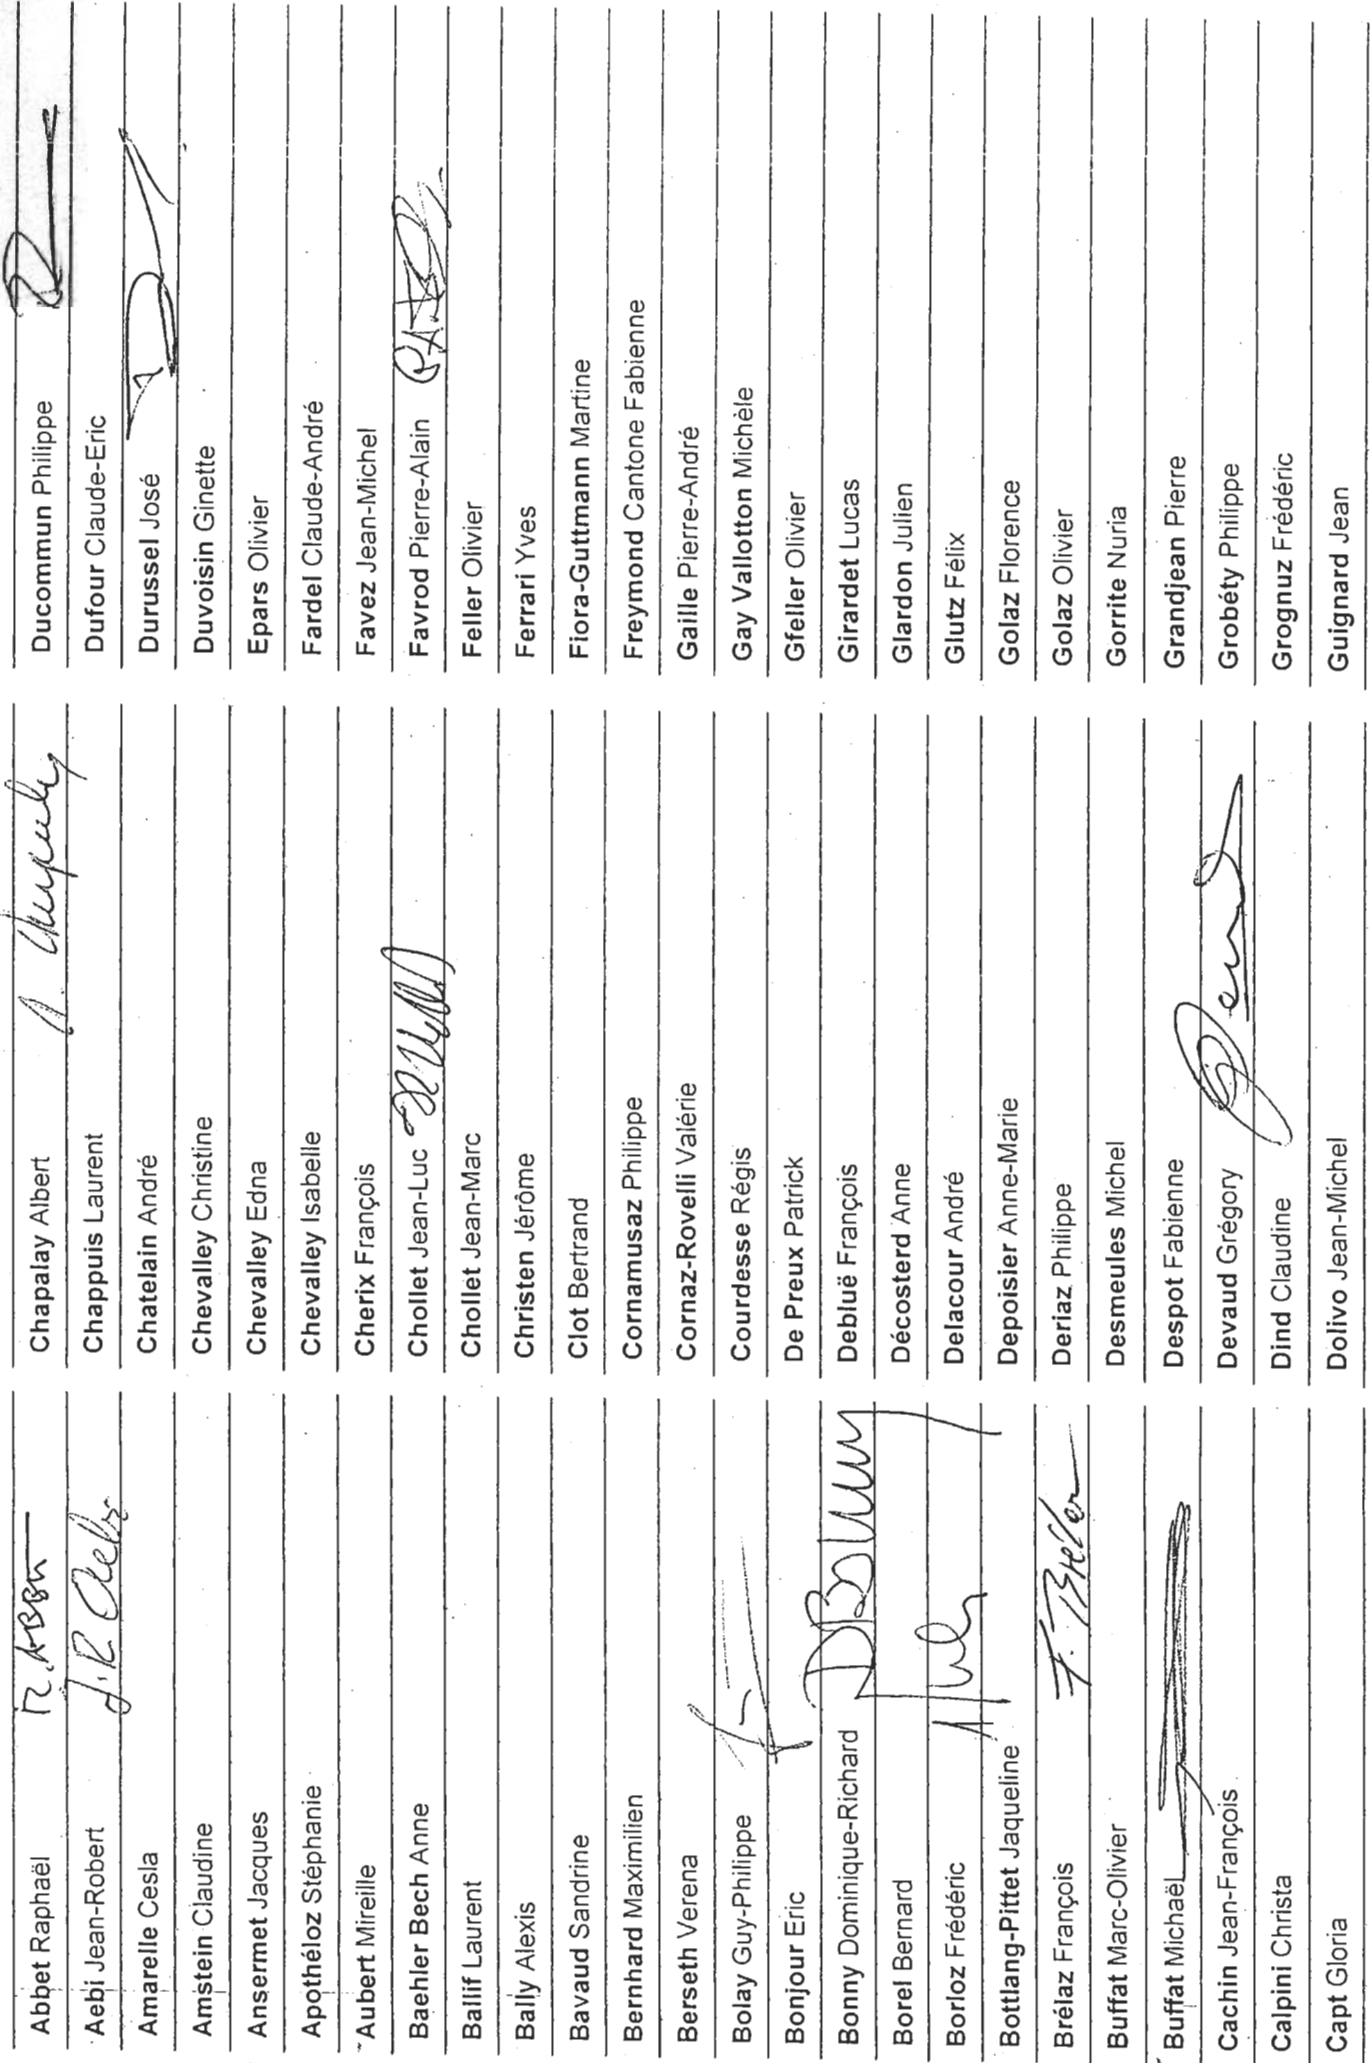 Abbet Raphaël
Aebi Jean-Robert
Amarelle Cesla
Amstein Claudine
Ansermet Jacques
Apothéloz Stéphanie
Aubert Mireille
Baehler Bech Anne
Ballif Laurent
Bally Alexis
Bavaud Sandrine
Bernhard Maximilien
Berseth Verena
Bolay Guy-Philippe
Bonjour Eric
Bonny Dominique-Richard
Borel Bernard
Borloz Frédéric
Bottlang-Pittet Jaqueline
Brélaz François
Buffat Marc-Olivier
Buffat Michaël
Cachin Jean-François
Calpini Christa
Capt Gloria
Chapalay Albert
Chappuis Laurent
Chatelain André
Chevalley Christine
Chevalley Edna
Chevalley Isabelle
Cherix François
Chollet Jean-Luc
Chollet Jean-Marc
Christen Jérôme
Clot Bertrand
Cornamusaz Philippe
Cornaz-Rovelli Valérie
Courdesse Régis
De Preux Patrick
Debluë François
Décosterd Anne
Delacour André
Depoisier Anne-Marie
Deriaz Philippe
Desmeules Michel
Despot Fabienne
Devaud Grégory
Dind Claudine
Dolivo Jean-Michel
Ducommun Philippe
Dufour Claude-Eric
Durussel José
Duvoisin Ginette
Epars Olivier
Fardel Claude-André
Favez Jean-Michel
Favrod Pierre-Alain
Feller Olivier
Ferrari Yves
Fiora-Guttmann Martine
Freymond Cantone Fabienne
Gaille Pierre-André
Gay Vallotton Michèle
Gfeller Olivier
Girardet Lucas
Glardon Julien
Glutz Félix
Golaz Florence
Golaz Olivier
Gorrite Nuria
Grandjean Pierre
Grobéty Philippe
Grognuz Frédéric
Guignard Jean